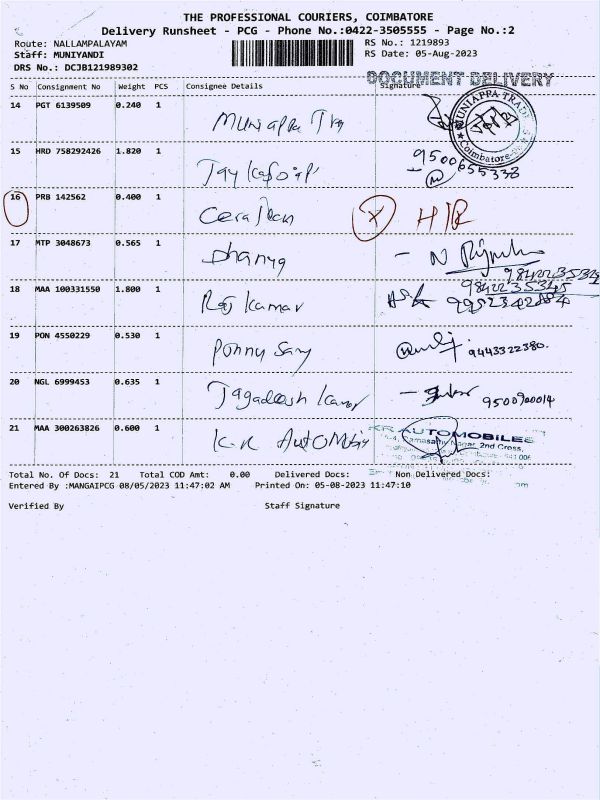 THE PROFESSIONAL COURIERS, COIMBATORE
Delivery Runsheet - PCG - Phone No.:0422-3505555 - Page No.:2
Route: NALLAMPALAYAM
RS No.: 1219893
Staff: MUNIYANDI
RS Date: 05-Aug-2023
DRS No.: DCJB121989302
DOCUMENT DELIVERY
S No Consignment No Weight PCS Consignee Details Signature
14 PGT 6139509 0.240 1
MUNIAPPA TRADERS
Coimbatore
15 HRD 758292426 1.820 1
9500655338
16 PRB 142562 0.400 1
17 MTP 3048673 0.565 1 Dhanya
18 MAA 100331550 1.800 1 Raj Kumar
19 PON 4550229 0.530 1 Ponny Samy 9443322380.
20 NGL 6999453 0.635 1 Jagadeesh Kumar 9500900014
21 MAA 300263826 0.600 1 K.K Automobiles
KR AUTOMOBILES
Ramasamy Nagar, 2nd Cross,
Total No. Of Docs: 21 Total COD Amt: 0.00 Delivered Docs: Non Delivered Docs:
Entered By :MANGAIPCG 08/05/2023 11:47:02 AM Printed On: 05-08-2023 11:47:10
Verified By Staff Signature